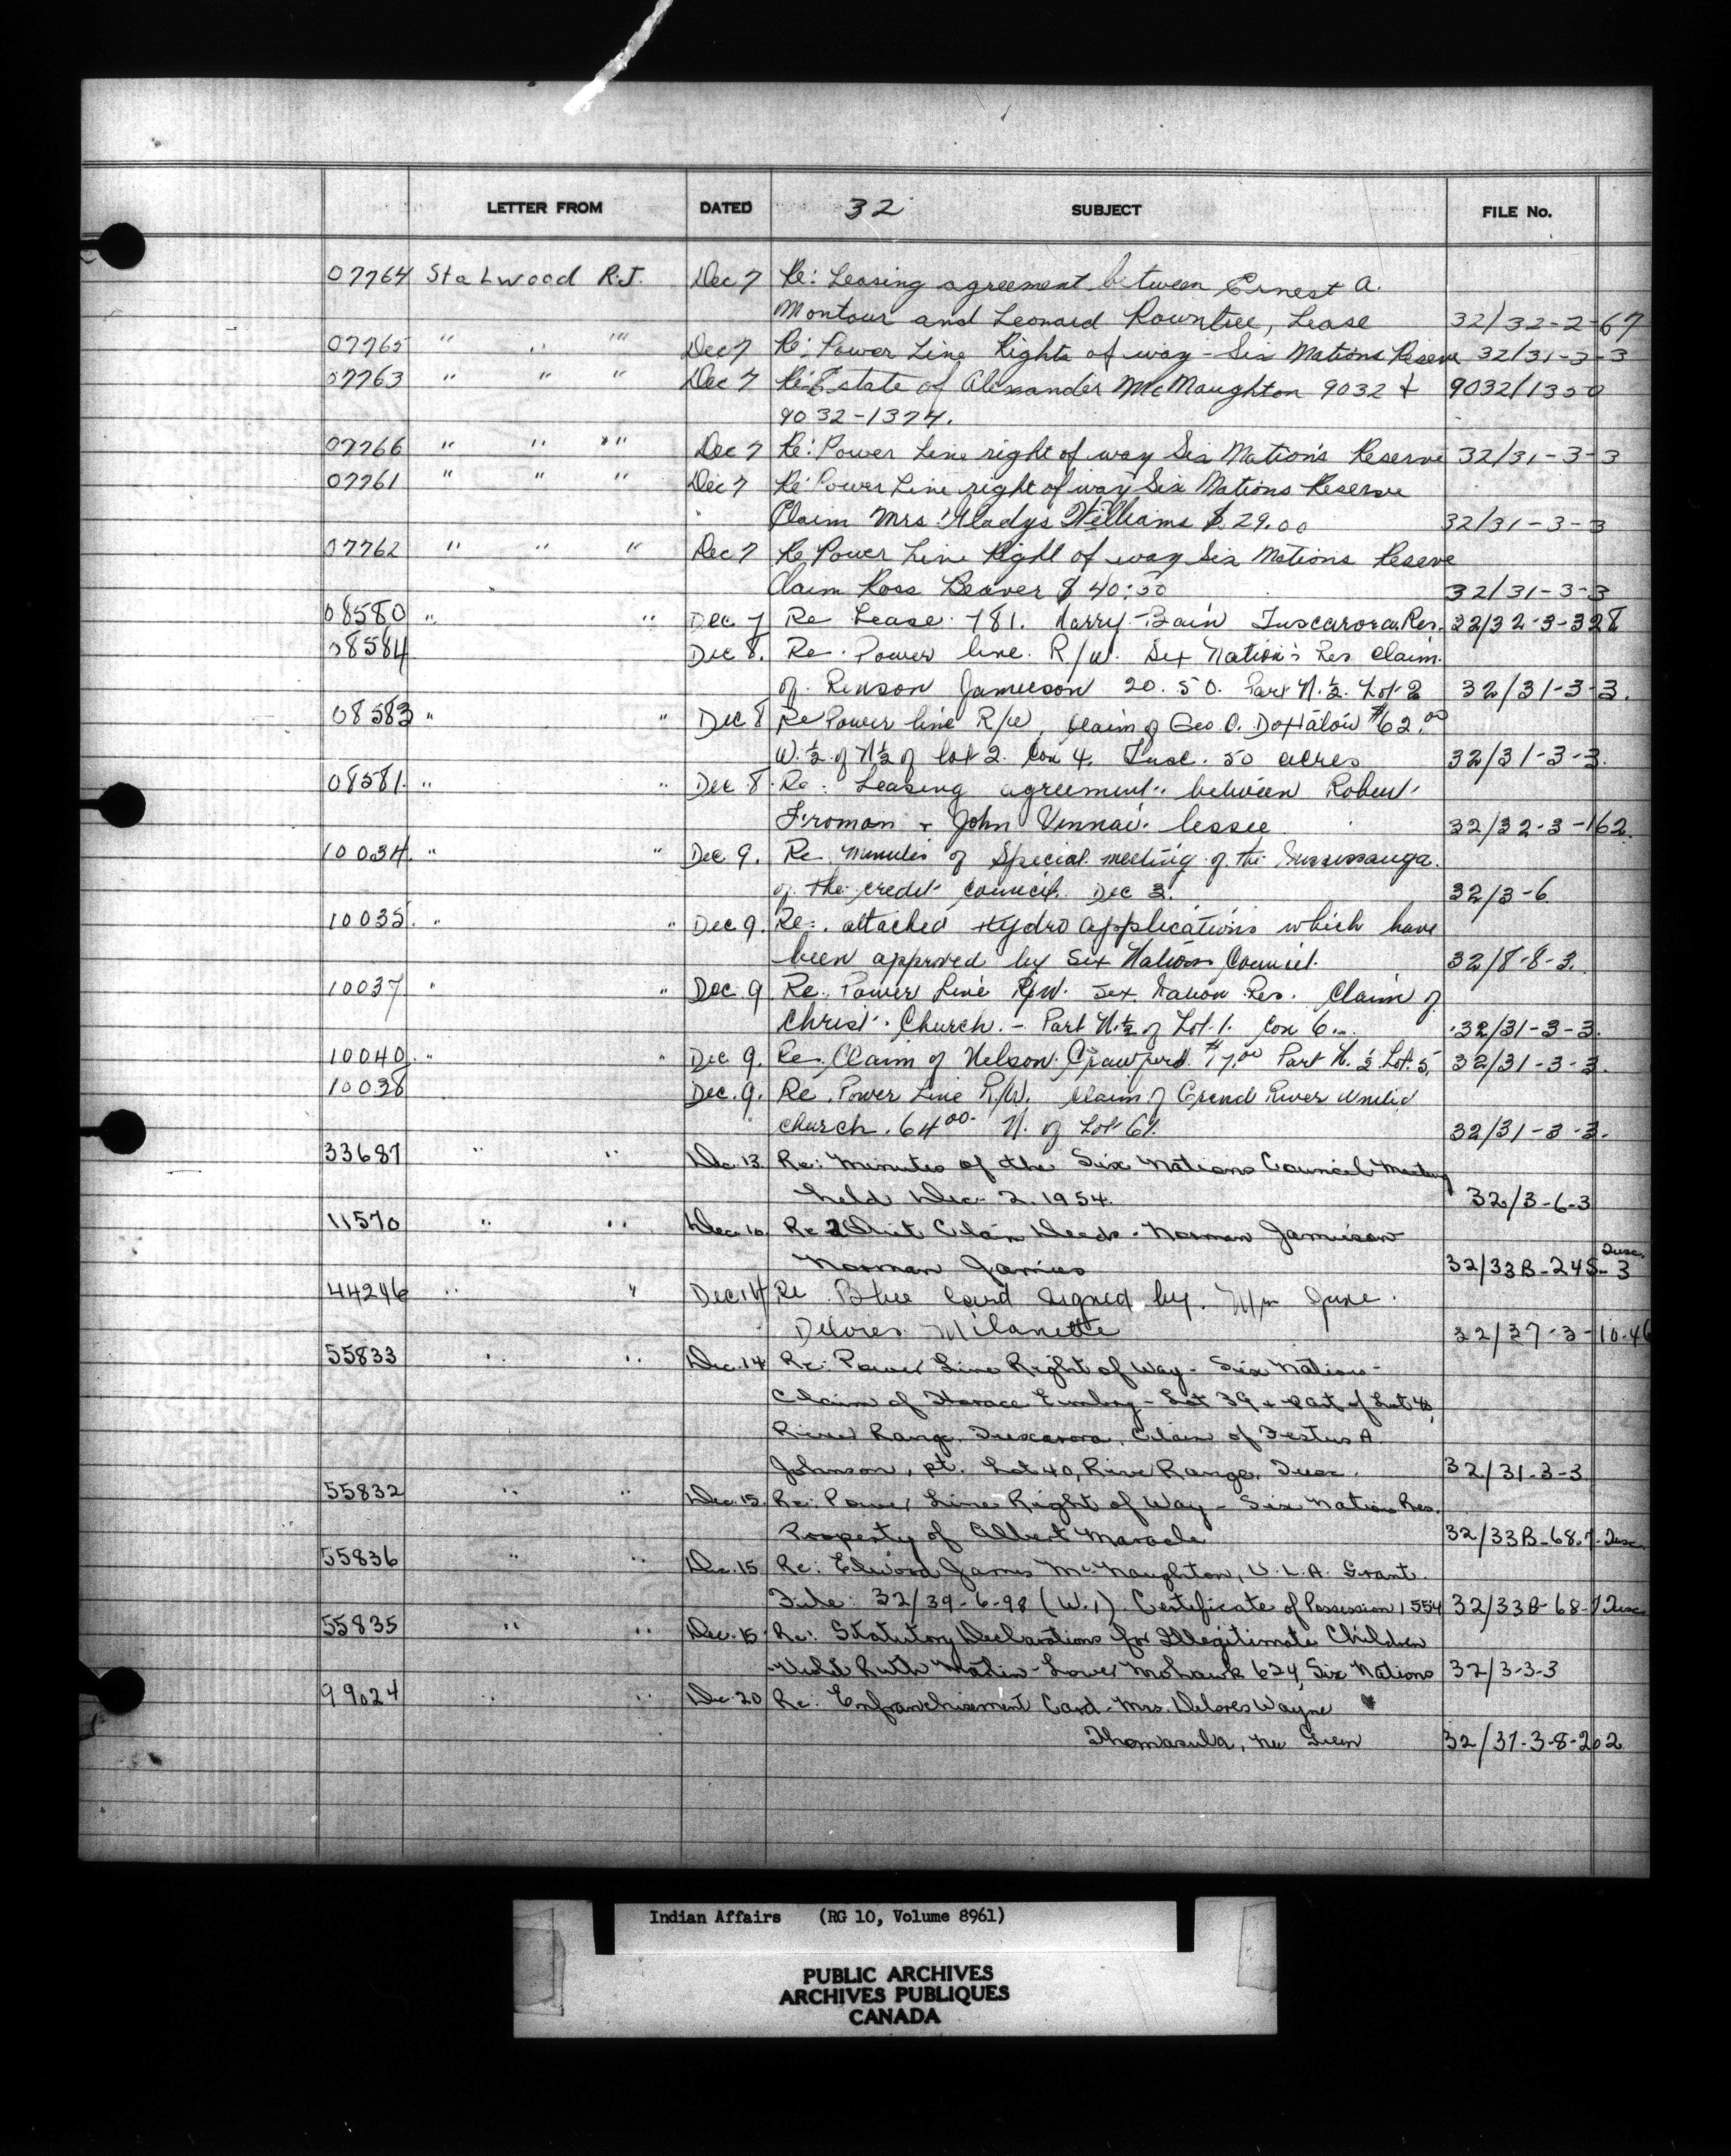 LETTER FROM DATED 32 SUBJECT FILE No.
07764 Stalwood R.J. Dec 7 Re: Leasing agreement between Ernest A.
Montour and Leonard Rowntree, Lease 32/32-2-67
07765 " " " Dec 7 Re: Power Line Rights of way - Six Nations Reserve 32/31-3-3
07763 " " " Dec 7 Re: Estate of Alexander McNaughton 9032 & 9032/1350
9032-1374.
07766 " " " Dec 7 Re: Power Line right of way Six Nation's Reserve 32/31-3-3
07761 " " " Dec 7 Re: Power Line right of way Six Nations Reserve
" Claim Mrs. Gladys Williams $ 29.00 32/31-3-3
07762 " " " Dec 7 Re Power Line Right of way Six Nations Reserve
Claim Ross Beaver $ 40:50 32/31-3-3
08580 " " Dec 7 Re Lease 781. Harry Bain Tuscarora Res. 32/32-3-328
08584 Dec 8. Re. Power line. R/W. Six Nation's Res Claim.
of. Renson Jamieson 20.50. Part N.½. Lot 2 32/31-3-3.
08583 " " Dec 8 Re Power line R/W, Claim of Geo. O. $62.00
W.½ of N½ of Lot 2. Con 4. Tusc. 50 acres 32/31-3-3.
08581. " " Dec 8. Re: Leasing agreement between Robert
Froman & John lessee 32/32-3-162.
10034. " " Dec 9. Re. Minutes of Special meeting of the Mississauga.
of the credit council. Dec 3. 32/3-6
10035. " " Dec 9. Re:. attached Hydro applications which have
been approved by Six Nations Council. 32/8-8-3.
10037 " " Dec 9 Re. Power Line R/W. Six Nation Res. Claim of
Christ. Church. - Part N.½ of Lot. 1. Con 6. 32/31-3-3.
10040. " " Dec 9. Re. Claim of Nelson Crawford $17.00 Part N. ½ Lot. 5, 32/31-3-3.
10038 Dec. 9. Re. Power Line R/W. Claim of Grand River United
church. 64 00. N. of Lot 61. 32/31-3-3.
33687 " " Dec. 13. Re: Minutes of the Six Nations Council Meeting
held Dec. 2. 1954. 32/3-6-3
11570 " " Dec. 10. Re 2 Quit Claim Deeds - Norman Jamieson
Norman 32/33B-245-3 Tusc.
44246 " " Dec. 14 Re Blue Card signed by June
Delores Milanette 32/37-3-10.46
55833 " " Dec. 14 Re: Power Line Right of Way - Six Nations -
Claim of Horace Embry - Lot 39 & part of Lot 40,
River Range, Tuscarora, Claim of Festus A.
Johnson, pt. Lot 40, River Range, Tusc. 32/31-3-3
55832 " " Dec. 15. Re: Power Line Right of Way - Six Nation Res.
Property of Albert Maracle 32/33B-68.7-Tusc.
55836 " " Dec. 15 Re: Elwood James McNaughton, V.L.A. Grant.
File: 32/39-6-98 (W.1). Certificate of Possession 1554 32/33B-68-7 Tusc
55835 " " Dec. 15 Re: Statutory Declarations for Illegitimate Children
Ruth Martin - Lower Mohawk 624, Six Nations 32/3-3-3
99024 " " Dec. 20 Re: Enfranchisement Card - Mrs. Delores Wayne
Thomasula, nee Green 32/37-3-8-202
Indian Affairs (RG 10, Volume 8961)
PUBLIC ARCHIVES
ARCHIVES PUBLIQUES
CANADA